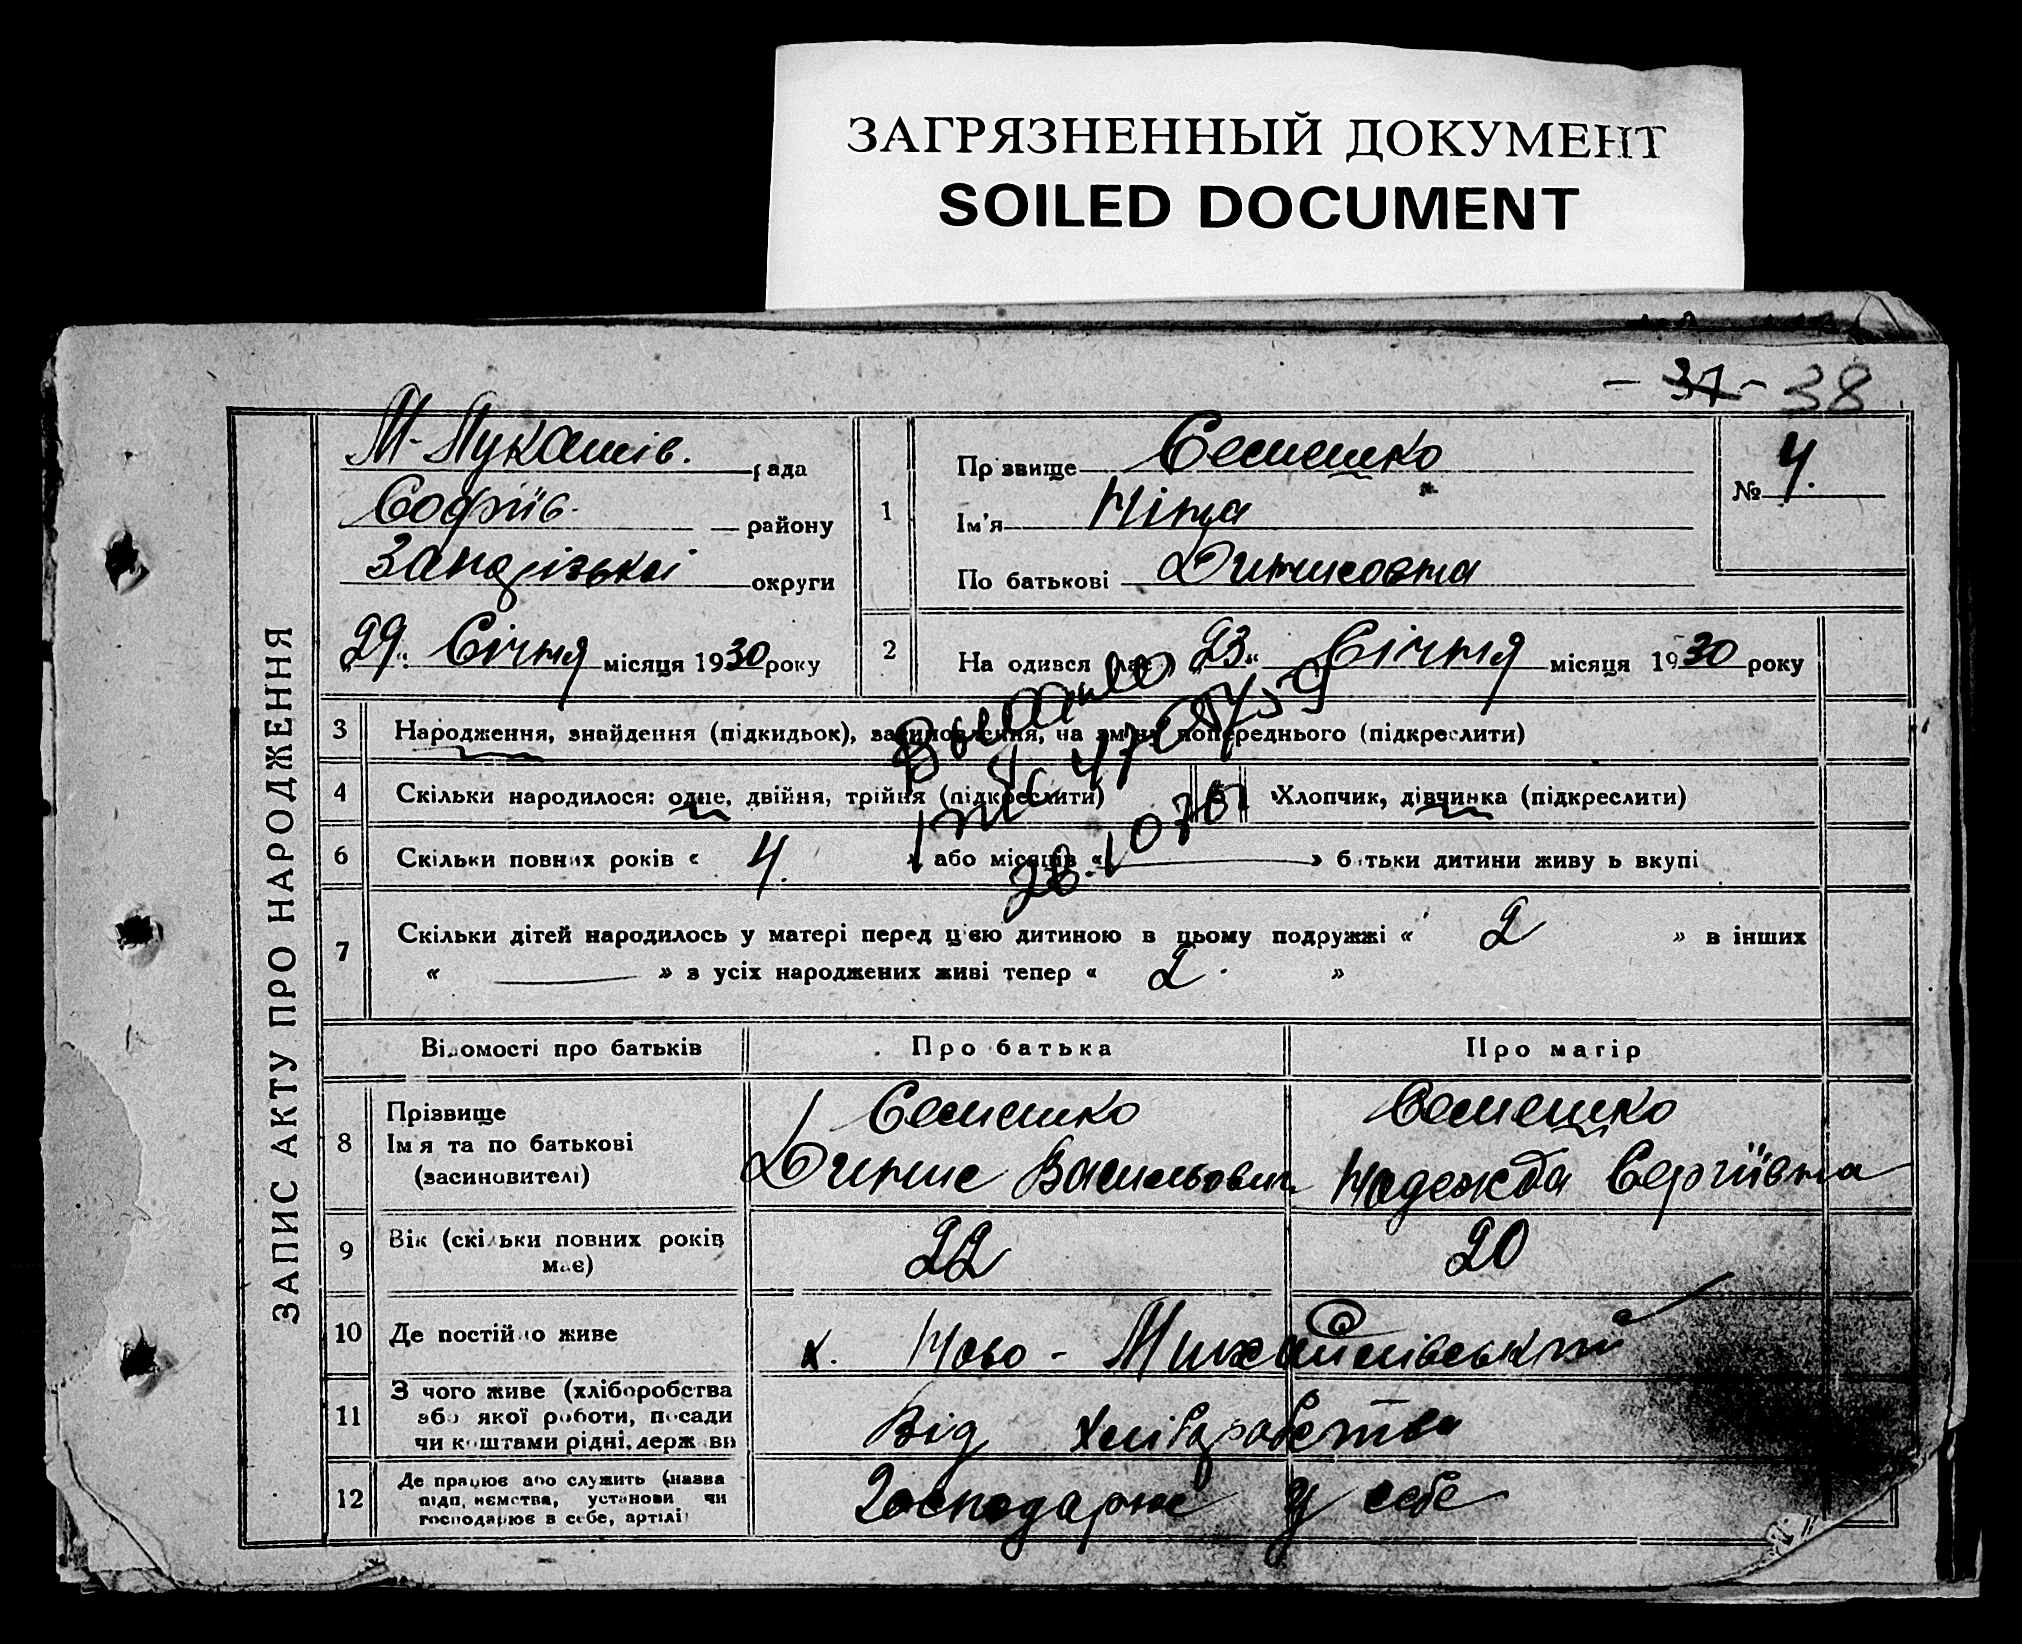 ЗАГРЯЗНЕННЫЙ ДОКУМЕНТ
SOILED DOCUMENT
- 37 - 38
ЗАПИС АКТУ ПРО НАРОДЖЕННЯ
М-Лукашів. рада
Софіїв. району
округи
„29“ Січня місяця 1930 року
1
Прізвище Семешко
Ім'я Ніна
По батькові Динисовна
№ 4.
2 На одився „23“ Січня місяця 1930 року
3 Народження, знайдення (підкидьок), засиновлення, на зміну попереднього (підкреслити)
4 Скільки народилося: одне, двійня, трійня (підкреслити)
5 Хлопчик, дівчинка (підкреслити)
6 Скільки повних років « 4. » або місяців « — » батьки дитини живуть вкупі
7 Скільки дітей народилось у матері перед цією дитиною в цьому подружжі « 2 » в інших
« — » з усіх народжених живі тепер « 2. »
Відомості про батьків Про батька Про матір
8 Прізвище
Ім'я та по батькові
(засиновителі)
Семешко
Динис Васильович
Семешко
Надежда Сергіївна
9 Вік (скільки повних років
має) 22 20
10 Де постійно живе х. Ново - Михайлівський
11 З чого живе (хліборобства
або якої роботи, посади
чи коштами рідні, держави
Від хліборобства
12 Де працює або служить (назва
підприємства, установи чи
господарює в себе, артілі)
Господарює у себе